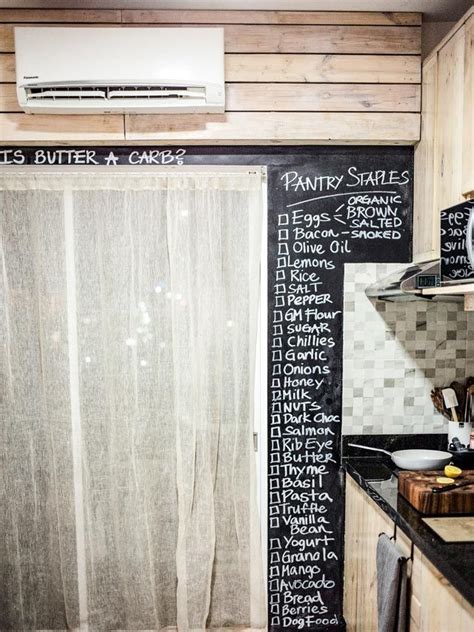 Panasonic
IS BUTTER A CARB?
PANTRY STAPLES
Eggs ORGANIC
BROWN
SALTED
Bacon - SMOKED
Olive Oil
Lemons
Rice
SALT
PEPPER
GM Flour
SUGAR
Chillies
Garlic
Onions
Honey
Milk
NUTS
Dark Choc
Salmon
Rib Eye
Butter
Thyme
Basil
Pasta
Truffle
Vanilla
Bean
Yogurt
Granola
Mango
Avocado
Bread
Berries
Dog Food